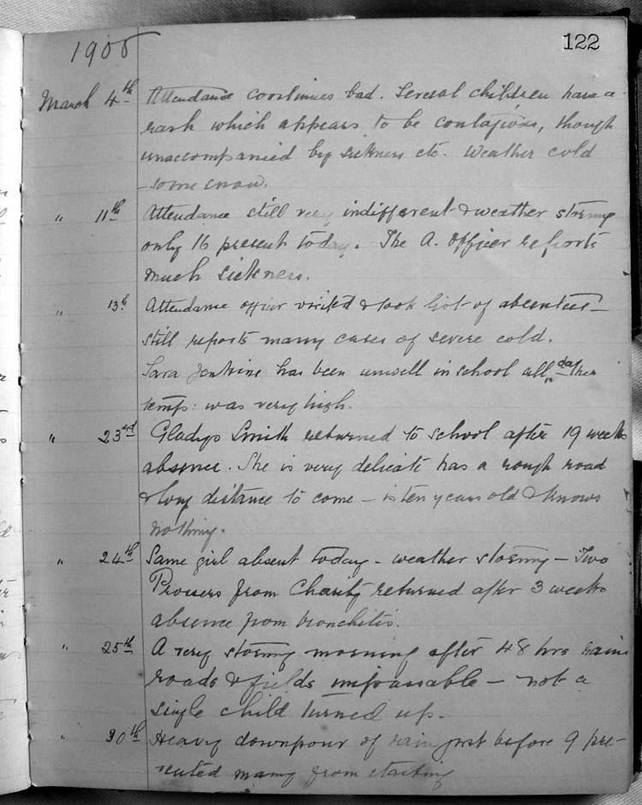 1908
122
March 4th Attendance continues bad. Several children have a
rash which appears to be contagious, though
unaccompanied by sickness etc. Weather cold
some snow.
" 11th Attendance still very indifferent & weather stormy
only 16 present today. The A. Officer reports
much sickness.
" 13th Attendance officer visited & took list of absentees –
still reports many cases of severe cold.
Sara Jenkins has been unwell in school all day her
temp: was very high.
" 23rd Gladys Smith returned to school after 19 weeks
absence. She is very delicate has a rough road
& long distance to come – is ten years old & knows
nothing.
" 24th Same girl absent today – weather stormy – Two
Prossers from Charity returned after 3 weeks
absence from bronchitis.
" 25th A very stormy morning after 48 hrs rain
roads & fields impassable – not a
single child turned up.
" 30th Heavy downpour of rain just before 9 pre-
vented many from starting